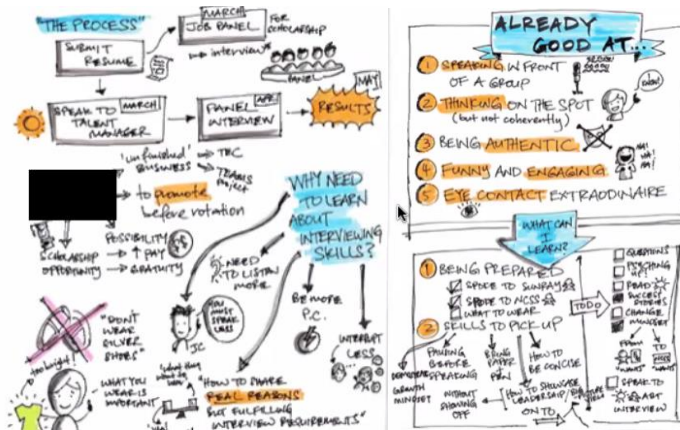 "THE PROCESS"
SUBMIT
RESUME
MARCH
JOB PANEL
FOR
SCHOLARSHIP
interview
PANEL
SPEAK TO
MARCH
TALENT
MANAGER
PANEL
INTERVIEW
MAY
RESULTS
'unfinished'
BUSINESS
TEC
TEARS
Project
to promote
before rotation
POSSIBILITY
↑ PAY
GRATUITY
SCHOLARSHIP
OPPORTUNITY
WHY NEED
TO LEARN
ABOUT
INTERVIEWING
SKILLS?
NEED
TO LISTEN
MORE
YOU
MUST
SPEAK
LESS
JC
BE MORE
P.C.
INTERRUPT
LESS
"DON'T
WEAR
SILVER
SHOES"
too bright!
WHAT YOU
WEAR IS
IMPORTANT
HOW TO SHARE
REAL REASONS
BUT FULFILLING
INTERVIEW REQUIREMENTS"
ALREADY
GOOD AT...
① SPEAKING IN FRONT
OF A GROUP
② THINKING ON THE SPOT
(but not coherently)
WOW!
③ BEING AUTHENTIC
④ FUNNY AND ENGAGING
HA!
HA!
HA!
⑤ EYE CONTACT EXTRAODINAIRE
WHAT CAN
I
LEARN?
① BEING PREPARED
SPOKE TO SUNRAY
SPOKE TO NCSS
WHAT TO WEAR
② SKILLS TO PICK UP
GROWTH
MINDSET
PAUSING
BEFORE
SPEAKING
BRING
PAPER
+
PEN
HOW TO
BE CONCISE
HOW TO SHOWCASE
LEADERSHIP
WITHOUT
SHOWING
OFF
ON TO
TO DO
QUESTIONS
PSYCHING
UP!
READ
SUCCESS
STORIES
CHANGE
MINDSET
FROM
TO
SPEAK TO
INTERVIEW